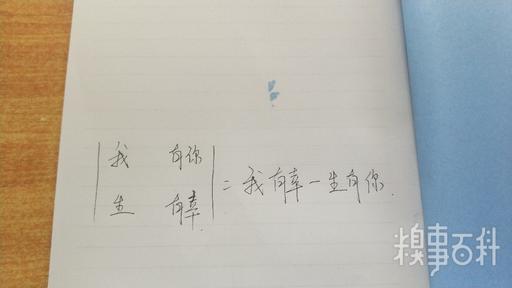 |我 有你|
|生 有幸| = 我有幸一生有你.
糗事百科